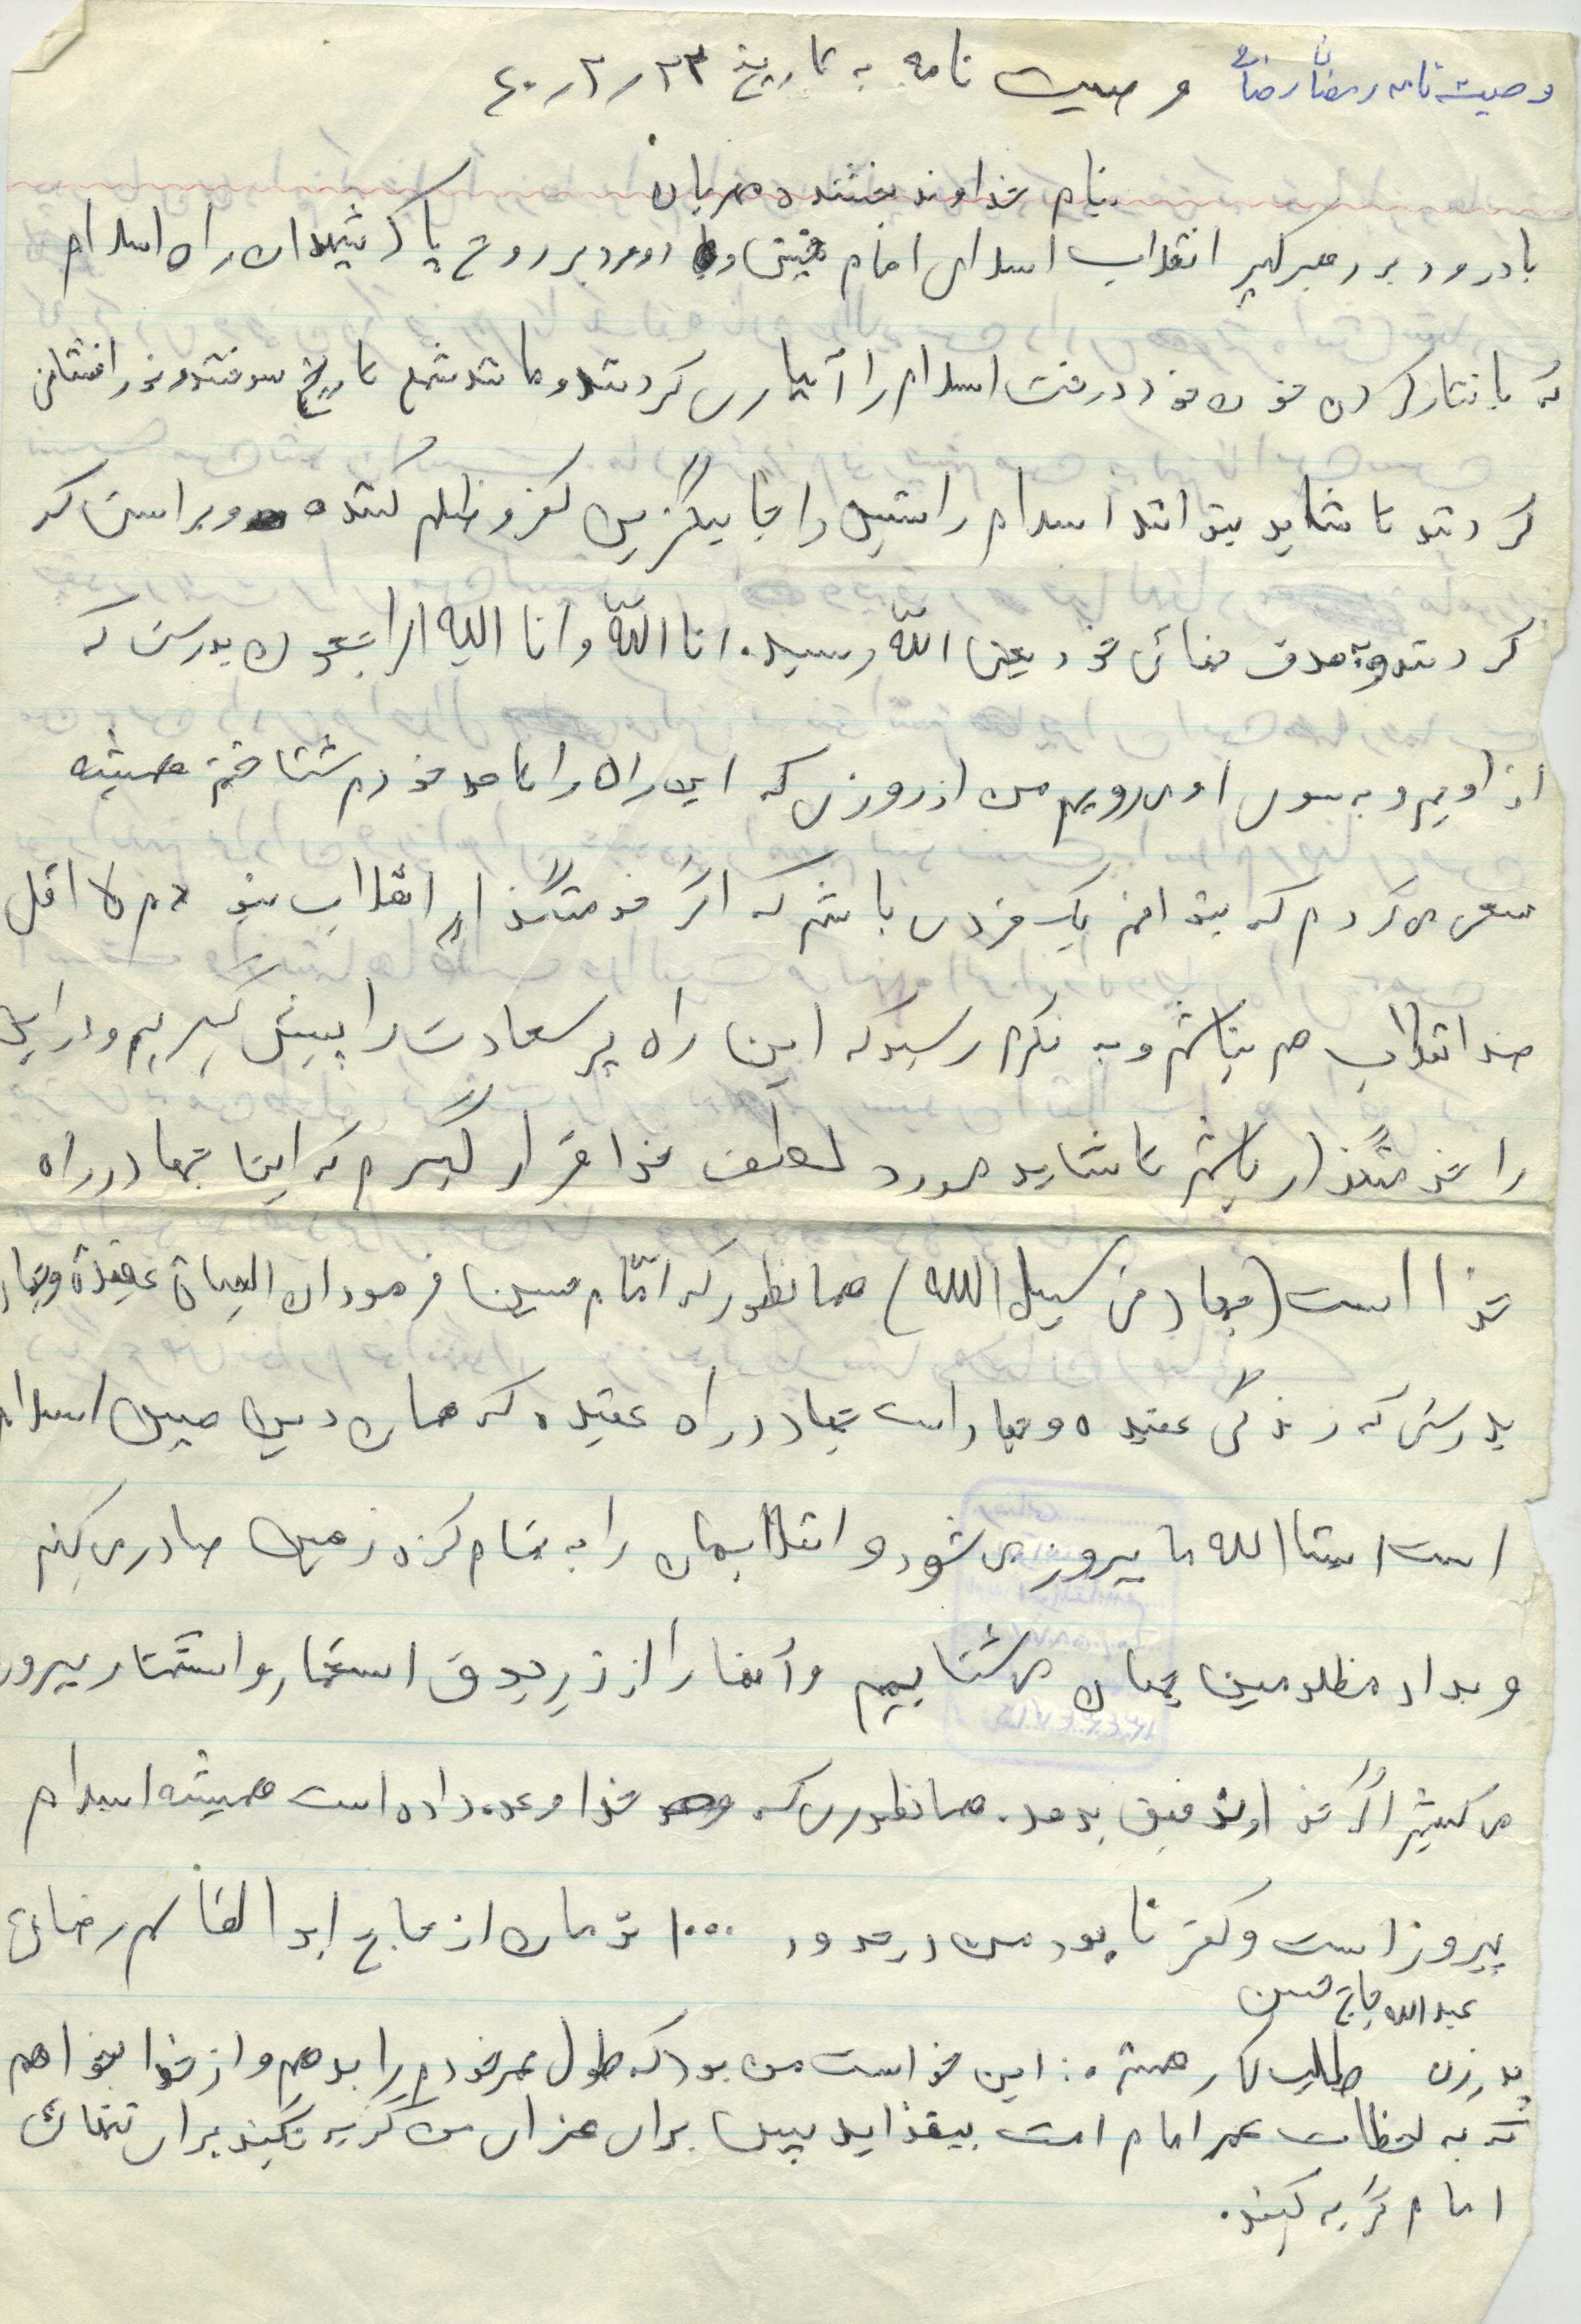 وصیت نامه رمضان رضائی وصیت نامه به تاریخ ۲۳ر۲ر۶۰
بنام خداوند بخشنده مهربان
با درود بر رهبر کبیر انقلاب اسلامی امام خمینی و با درود بر روح پاک شهیدان راه اسلام
که با نثار کردن خون خود درخت اسلام را آبیاری کردند و مانند شمع تاریخ سوختند و نور افشانی
کردند تا شاید بتوانند اسلام راستین را جایگزین کفر و ظلم کننده و براستی که
کردند و به هدف نهائی خود یعنی اللّه رسید. انا اللّه وانا الیه الراجعون بدرستی که
از اوییم و به سوی او می رویم من از روزی که این راه را تا حد خودم شناختم همیشه
سعی می کردم که بتوانم یک فردی باشم که اگر خدمتگذار انقلاب نبودم لااقل
ضد انقلاب هم نباشم و به فکرم رسید که این راه پر سعادت را پیش گیریم و در این
را خدمتگذار باشم تا شاید مورد لطف خدا قرار گیرم که این جهاد در راه
خدا است (جهاد فی سبیل الله) همانطور که امام حسین فرمود ان الحیاة عقیدة وجهاد
بدرستی که زندگی عقیده و جهاد است جهاد در راه عقیده که همان دین مبین اسلام
است انشاالله ما پیروز می شود و انقلابمان را به تمام کره زمین صادر می کنم
و بداد مظلومین جهان می شتابیم و آنها را از زیر یوق استعمار و استثمار بیرون
می کشیم اگر خداوند توفیق بدهد. همانطوری که خدا وعده داده است همیشه اسلام
پیروز است و کفر نابود من در حدود ۱۰۰۰ تومان از حاج ابوالقاسم رضائی
عبدالله حاج حسن
پدرزن طلب کار هستم: این خواست من بود که طول عمر خودم را بدهم و از خدا بخواهم
که به لحظات عمر امام امت بیفزاید پس برای عزای من گریه نکنید برای تنهائی
امام گریه کنید.